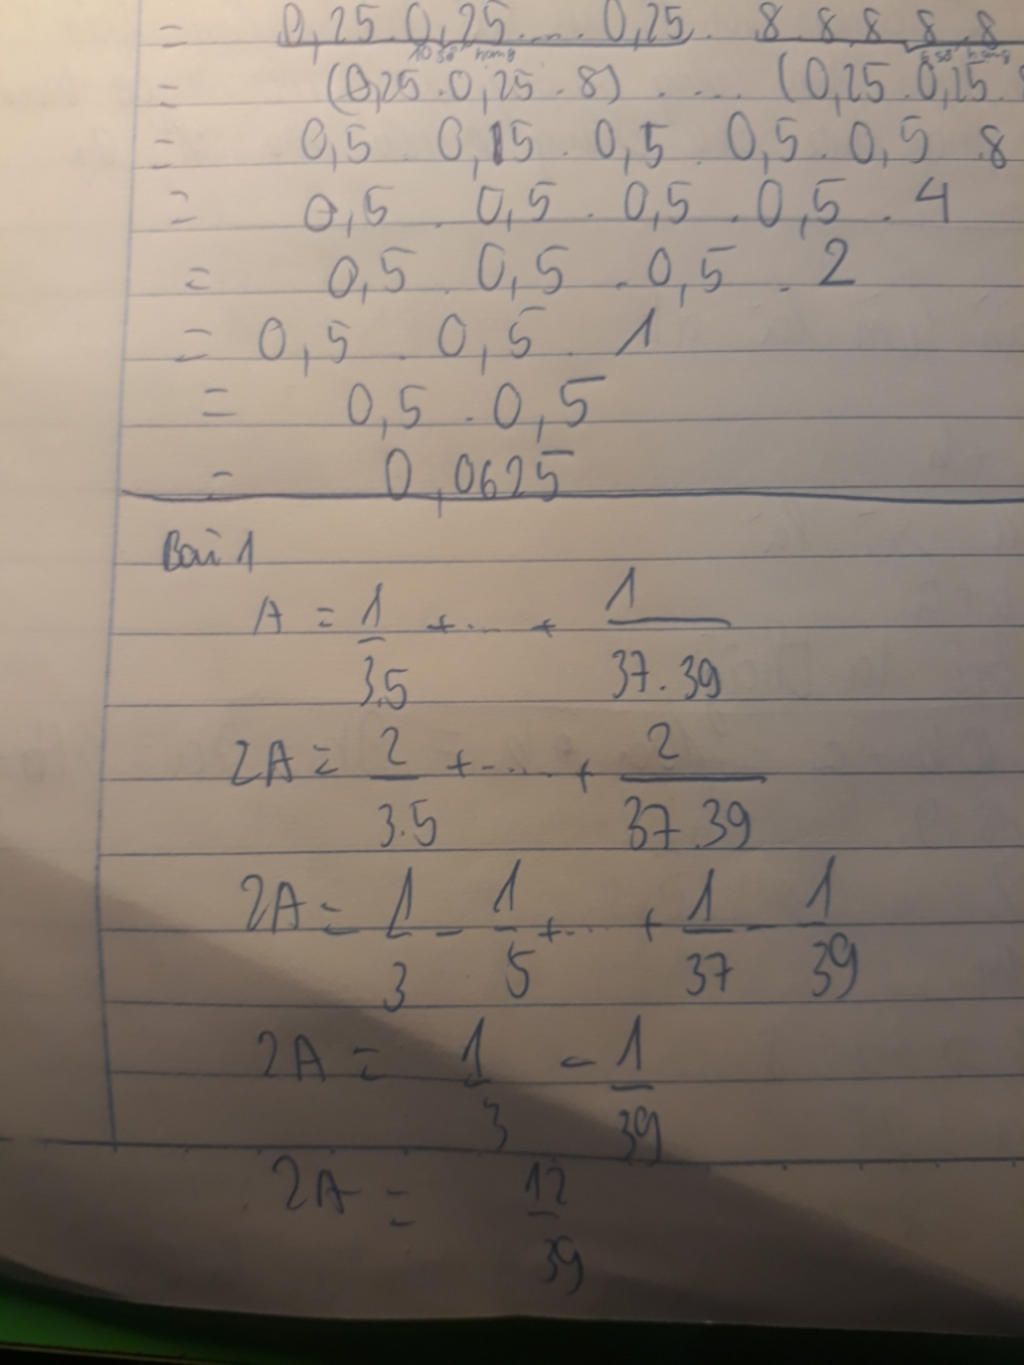 = 0,25.0,25.... 0,25. 8 8 8 8 8
10 số hạng số hạng
= (0,25.0,25.8) .... (0,25.0,25.
= 0,5 . 0,15 . 0,5 . 0,5 . 0,5 8
= 0,5 . 0,5 . 0,5 . 0,5 . 4
= 0,5 . 0,5 . 0,5 . 2
= 0,5 . 0,5 . 1
= 0,5 . 0,5
= 0,0625
Bài 1
A = 1/3.5 + ... + 1/37.39
2A = 2/3.5 + .... + 2/37.39
2A = 1/3 - 1/5 + ... + 1/37 - 1/39
2A = 1/3 - 1/39
2A = 12/39